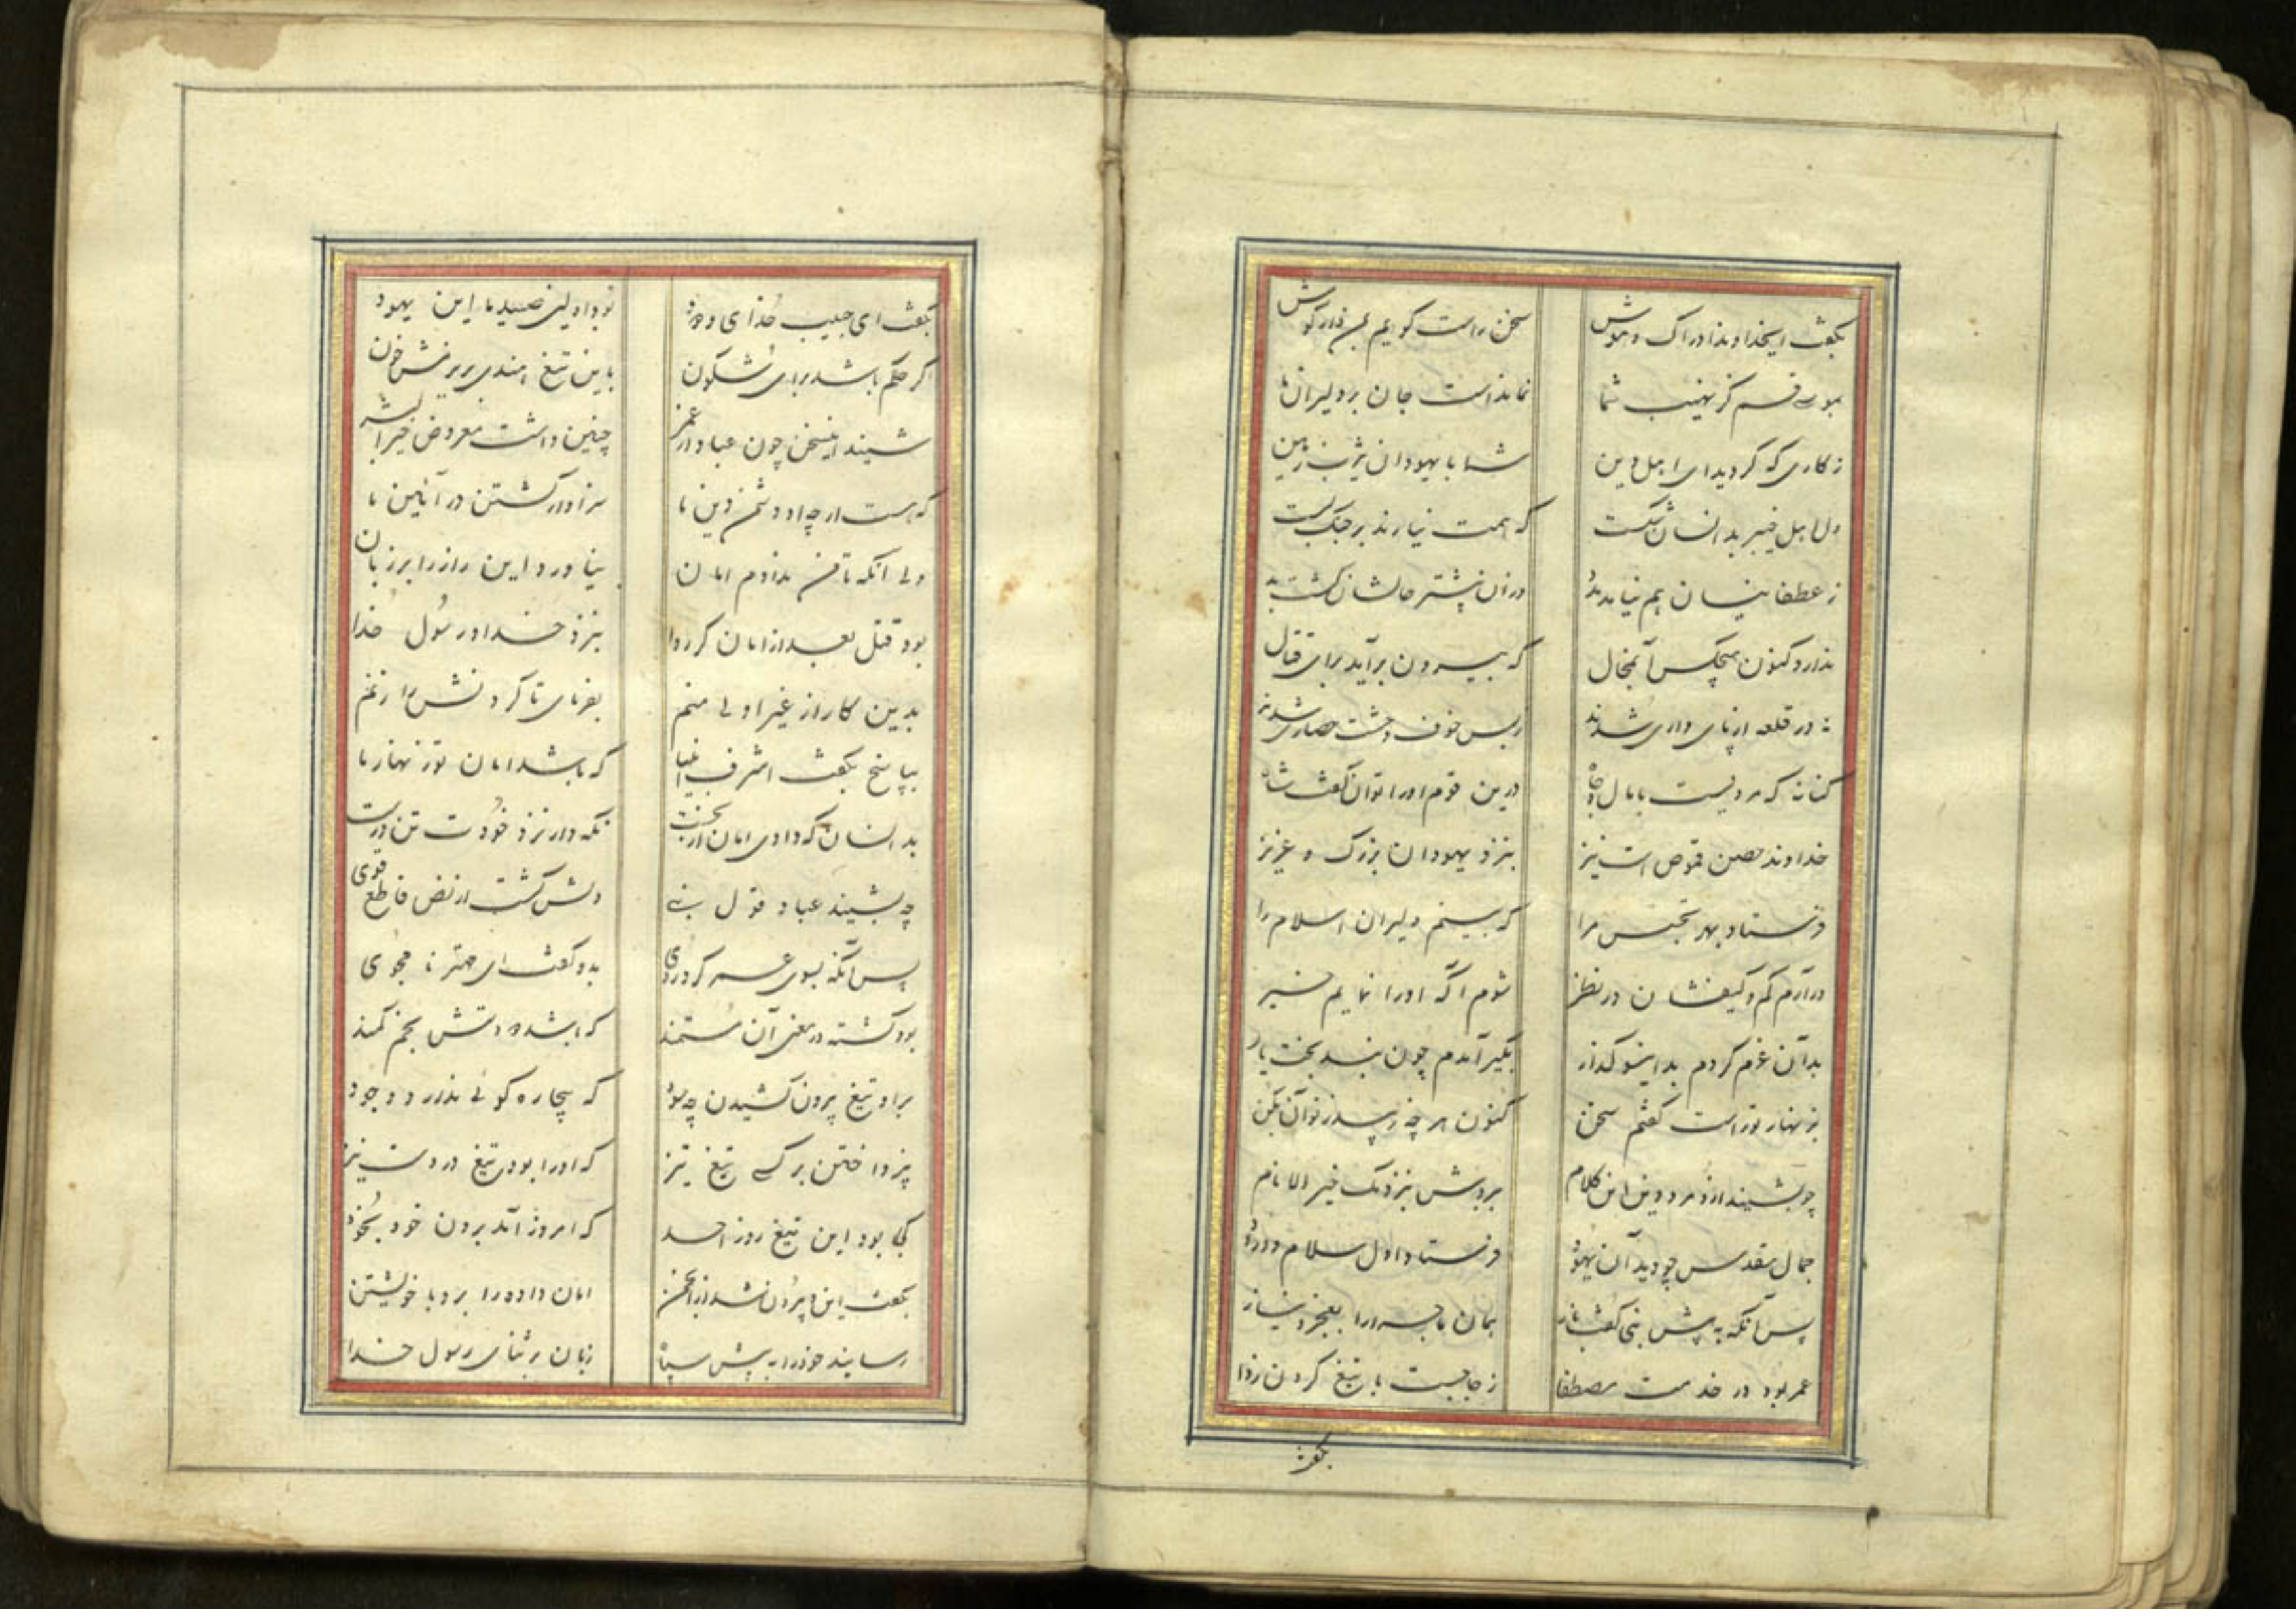 بگفت ایخداوند ادراک و هوش سخن راست گویم بمن دار گوش
بموسی قسم کز نهیب شما نمانداست جان بر دلیران ما
ز کاری که کردید ای اهل دین شما با یهودان یثرب زمین
دل اهل خیبر بدانسان شکست که همت نیارند بر جنگ بست
ز غطفانیان هم نیامد مدد وزان پیشتر حالشان گشت بد
ندارد کنون هیچکس آنمجال که بیرون برآید برای قتال
در قلعه از پای داری شدند ز بس خوف و وحشت حصاری شدند
کنانه که مردیست با مال و جاه درین قوم او را توان گفت شاه
خداوند حصن قموص است نیز بنزد یهودان بزرگ و عزیز
فرستاد بهر تجسس مرا که بینم دلیران اسلام را
درآرم کم و کیفشان در نظر شوم آگه او را نمایم خبر
بدآن عزم کردم بداینسو گذار بگیر آمدم چون نبد بخت یار
بزنهار تو راست گفتم سخن کنون هر چه رسد ز تو آن بکن
چو بشنید ازو مرد دین این کلام بردش بنزدیک خیر الانام
جمال مقدس چو دید آن یهود فرستاد اول سلام و درود
پس آنگه به پیش نبی گفت باز همان ماجرا را بعجز و نیاز
عمر بود در خدمت مصطفا ز جا جست با تیغ گردن زدا
بگفت
بگفت ای حبیب خدای ودود این یهود
اگر حکم باشد برای شگون باین تیغ هندی بریزمش خون
شنید اینسخن چون عباد از عمر چنین داشت معروض خیر البشر
که هست ار چه او دشمن دین ما سزاوار کشتن در آئین ما
ولی آنکه تا من ندادم امان نیاورد این راز را بر زبان
بود قتل بعد از امان کی روا بنزد خدا و رسول خدا
بدین کار از غیر اولی منم بفرمای تا گردنش را زنم
بپاسخ بگفت اشرف انبیا که باشد امان تو زنهار ما
بدانسان که دادی امان از نخست نگه دار نزد خودت تن درست
چو بشنید عباد قول نبی دلش گشت از نص قاطع قوی
پس آنگه بسوی عمر کرد روی بدو گفت ای مهتر نامجوی
بود کشته در معنی آن مستمند که باشد دو دستش بخم کمند
براو تیغ بیرون کشیدن چه سود که بیچاره گوئی ندارد وجود
پرداختن بر کسی تیغ تیز که او را بود تیغ در دست نیز
کجا بود این تیغ روز احد که امروز آمد برون خود بخود
بگفت این و بیرون شد از انجمن امان داده را برد با خویشتن
رسانید خود را به پیش سپاه زبان بر ثنای رسول خدا